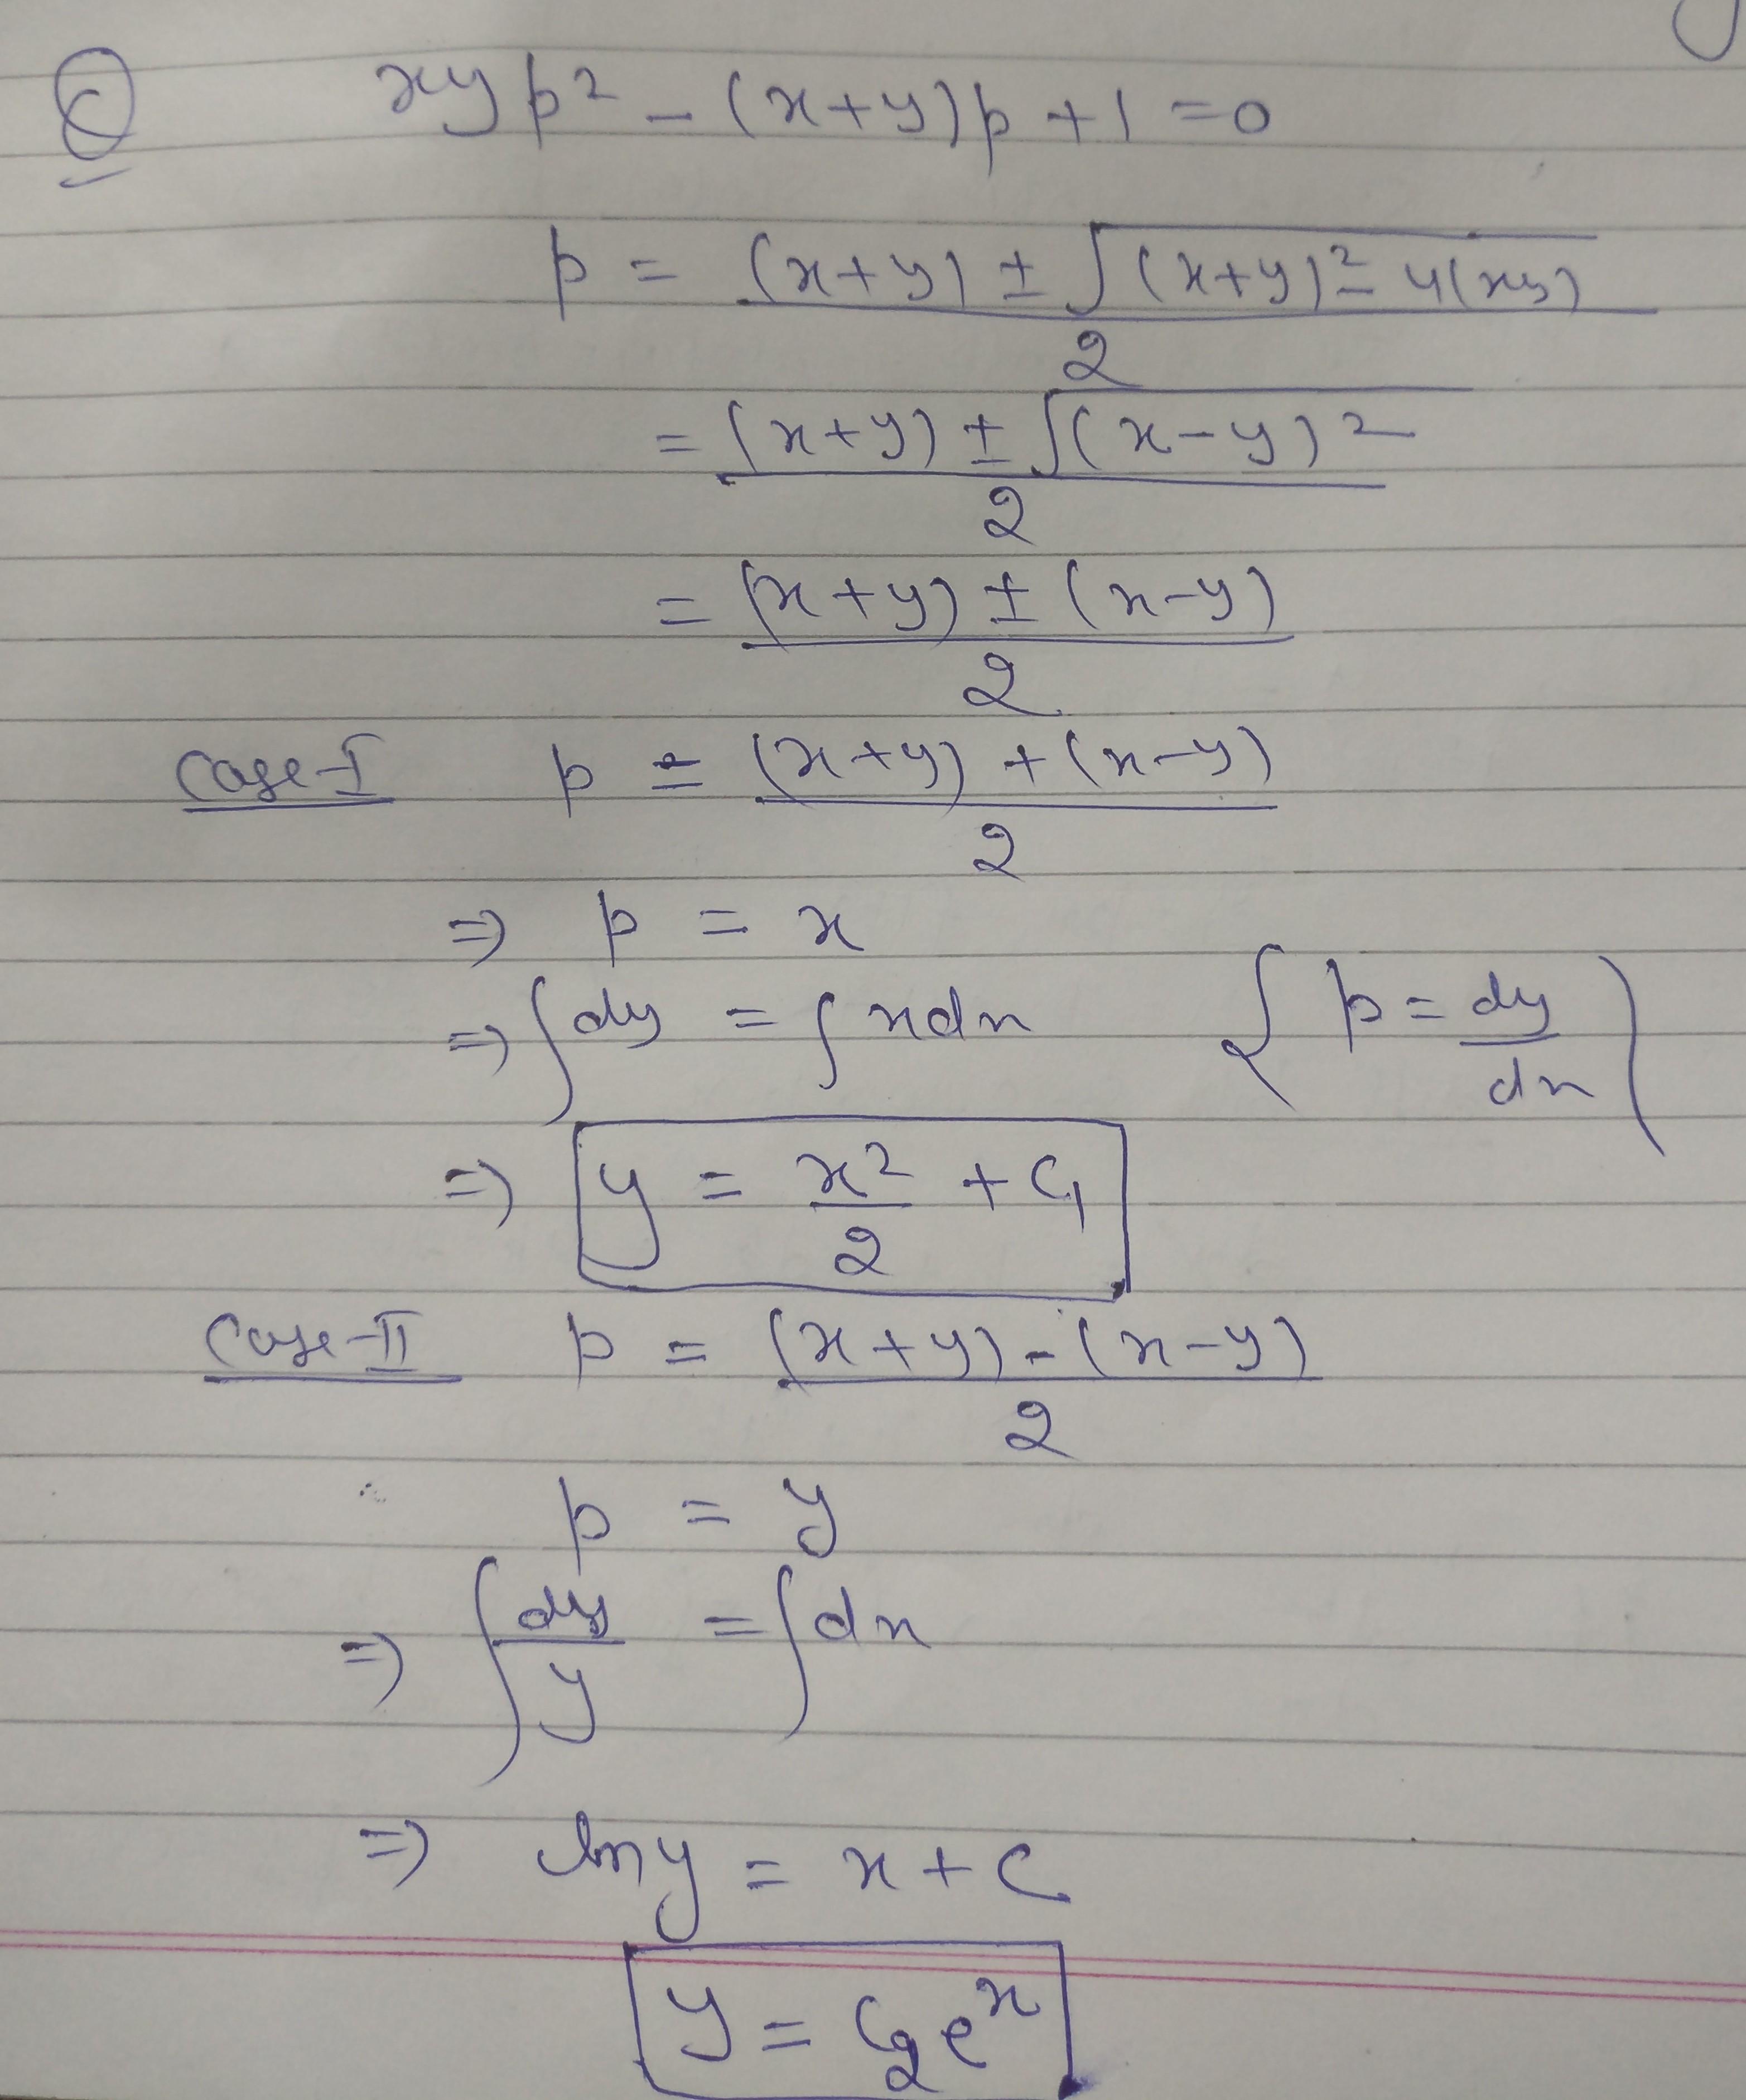 Q xyp² - (x+y)p + 1 = 0
p = (x+y) ± √(x+y)² - 4(xy) / 2
= (x+y) ± √(x-y)² / 2
= (x+y) ± (x-y) / 2
Case-I p = (x+y) + (x-y) / 2
⇒ p = x
⇒ ∫dy = ∫xdx { p = dy/dx }
⇒ y = x²/2 + C₁
Case-II p = (x+y) - (x-y) / 2
p = y
⇒ ∫dy/y = ∫dx
⇒ lny = x + C
y = C₂eˣ